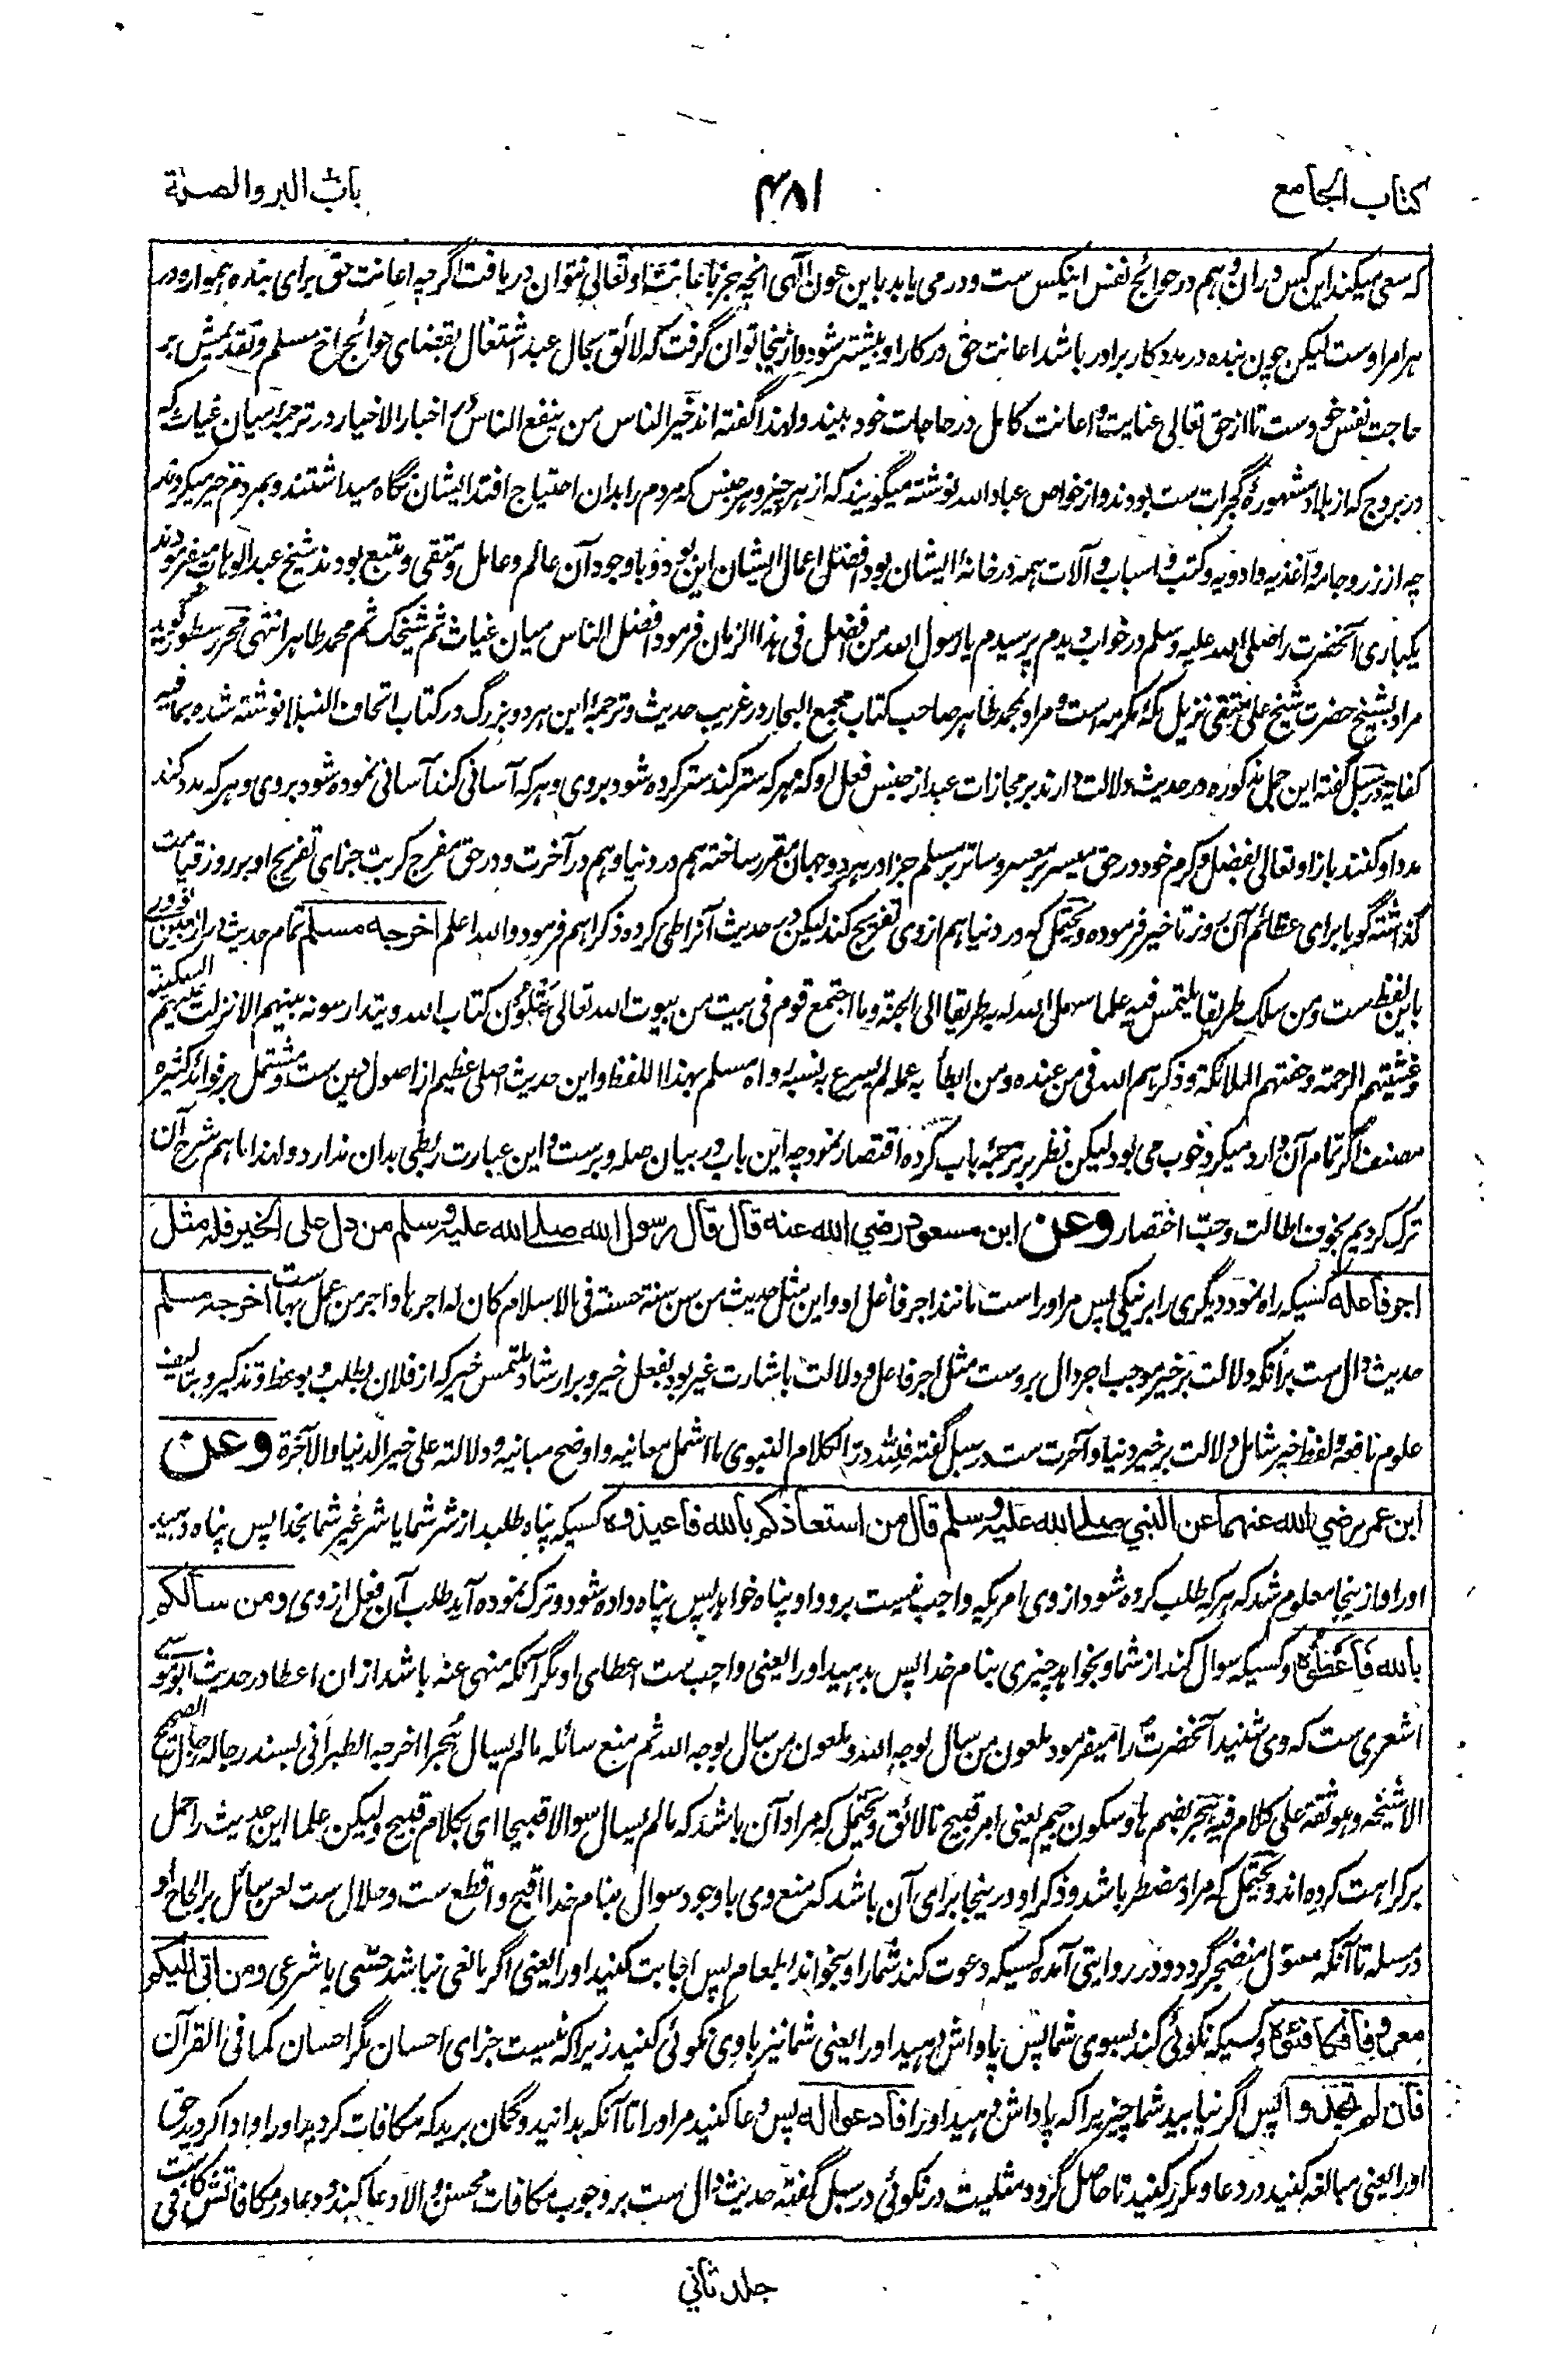 کتاب الجامع
۴۸۱
باب البر والصلة
که سعی میکند این کس در آن و هم در حوائج نفس اینکس ست و در می یابد باین عون الٰهی انچه بجز باعانت او تعالی نتوان دریافت اگرچه اعانت حق برای بنده همواره در
هر امر اوست لیکن چون بنده در مدد کار برادر باشد اعانت حق در کار او بیشتر شود و ازینجا توان گرفت که لائق بحال عبد اشتغال بقضای حوائج اخ مسلم و تقدیمش بر
حاجت نفس خودست تا از حق تعالی عنایت و اعانت کامل در حاجات خود بیند و لهذا گفته اند خیر الناس من ینفع الناس در اخبار الاخیار در ترجمهٔ میان غیاث که
در بروج که از بلاد مشهورهٔ گجرات ست بودند و از خواص عباد الله نوشته میگویند که از هر چیز و هر جنس که مردم را بدان احتیاج افتد ایشان نگاه میداشتند و بمردم خیر میکردند
چه از زر و جامه و اغذیه و ادویه و کتب و اسباب و آلات همه در خانهٔ ایشان بود افضل اعمال ایشان این بود و با وجود آن عالم و عامل و متقی و متبع بودند شیخ عبد الوهاب میفرمودند
یکباری آنحضرت را صلی الله علیه وسلم در خواب دیدم پرسیدم یا رسول الله من افضل فی هذا الزمان فرمود افضل الناس میان غیاث ثم شیخک ثم محمد طاهر انتهی محرر سطور گوید
مراد بشیخ حضرت شیخ علی متقی نزیل مکهٔ مکرمه است و مراد بمحمد طاهر صاحب کتاب مجمع البحار در غریب حدیث و ترجمهٔ این هر دو بزرگ در کتاب اتحاف النبلا نوشته شده بما فیه
کفایة در سبل گفته این جمل مذکوره در حدیث دلالت دارند بر مجازات عبد از جنس فعل او که هر که ستر کند ستر کرده شود بروی و هر که آسانی کند آسانی نموده شود بروی و هر که مدد کند
مدد او کنند باز او تعالی بفضل و کرم خود در حق میسر بر معسر و ساتر بر مسلم جزا در هر دو جهان مقرر ساخته هم در دنیا و هم در آخرت و در حق مفرج کربت جزای تفریج او بر روز قیامت
گذاشته گویا برای عظائم آن روز تاخیر فرموده و یحتمل که در دنیا هم ازوی تفریج کند لیکن در حدیث آنرا طی کرده ذکر اهم فرمود والله اعلم اخرجه مسلم تمام حدیث در اربعین نووی
باین لفظ ست ومن سلک طریقا یلتمس فیه علما سهل الله له به طریقا الی الجنة وما اجتمع قوم فی بیت من بیوت الله تعالی یتلون کتاب الله ویتدارسونه بینهم الا نزلت علیهم السکینة
وغشیتهم الرحمة وحفتهم الملائکة وذکرهم الله فی من عنده ومن ابطأ به عمله لم یسرع به نسبه رواه مسلم بهذا اللفظ و این حدیث اصلی عظیم از اصول دین ست و مشتمل بر فوائد کثیره
مصنف اگر تمام آن وارد میکرد خوب می بود لیکن نظر بر ترجمهٔ باب کرده اقتصار نمود چه این باب در بیان صله و برست و این عبارت ربطی بدان ندارد و لهذا ما هم شرح آن
ترک کردیم بخوف اطالت و حب اختصار وعن ابن مسعود رضي الله عنه قال قال رسول الله صلى الله عليه وسلم من دل على الخير فله مثل
اجر فاعله کسیکه راه نمود دیگری را بر نیکی پس مر اوراست مانند اجر فاعل او و این مثل حدیث من سن سنة حسنة فی الاسلام کان له اجرها واجر من عمل بها ست اخرجه مسلم
حدیث دال ست بر آنکه دلالت بر خیر موجب اجر دال بروست مثل اجر فاعل و دلالت باشارت غیر بود بفعل خیر و بارشاد ملتمس خیر که از فلان بطلب و بوعظ و تذکیر و بتالیف
علوم نافعه و لفظ خیر شامل دلالت بر خیر دنیا و آخرت ست در سبل گفته فلله در الکلام النبوی ما اشمل معانیه واوضح مبانیه ودلالته علی خیر الدنیا والآخرة وعن
ابن عمر رضي الله عنهما عن النبي صلى الله عليه وسلم قال من استعاذكم بالله فاعيذوه کسیکه پناه طلبد از شر شما یا شر غیر شما بخدا پس پناه دهید
او را و ازینجا معلوم شد که هر که طلب کرده شود ازوی امریکه واجب نیست برو و او پناه خواهد پس پناه داده شود و ترک نموده آید طلب آن فعل ازوی ومن سألكم
بالله فأعطوه و کسیکه سوال کند از شما و بخواهد چیزی بنام خدا پس بدهید او را یعنی واجب ست اعطای او مگر آنکه منهی عنه باشد ازان اعطا در حدیث ابو موسی
اشعری ست که وی شنید آنحضرت را میفرمود ملعون من سال بوجه الله وملعون من سال بوجه الله ثم منع سائله ما لم یسال هجرا اخرجه الطبرانی بسند رجاله رجال الصحیح
الا شیخه وهو ثقة علی کلام فیه هجر بضم ها و سکون جیم یعنی امر قبیح نالائق و یحتمل که مراد آن باشد که ما لم یسال سوالا قبیحا ای بکلام قبیح ولیکن علما این حدیث را حمل
بر کراهت کرده اند و یحتمل که مراد مضطر باشد و ذکر او درینجا برای آن باشد که منع وی با وجود سوال بنام خدا اقبح و اقطع ست و حلال ست لعن سائل بر الحاح او
در مسله تا آنکه مسئول منضجر گردد و در روایتی آمده کسیکه دعوت کند شما را و بخواند بطعام پس اجابت کنید او را یعنی اگر مانعی نباشد حسی یا شرعی ومن اتى اليكم
معروفا فكافئوه و کسیکه نکوئی کند بسوی شما پس پاداش دهید او را یعنی شما نیز با وی نکوئی کنید زیرا که نیست جزای احسان مگر احسان کما فی القرآن
فان لم تجدوا پس اگر نیابید شما چیزیرا که پاداش دهید او را فادعوا له پس دعا کنید مر او را تا آنکه بدانید و گمان برید که مکافات کردید او را و ادا کردید حق
او را یعنی مبالغه کنید در دعا و مکرر کنید تا حاصل گردد مثلیت در نکوئی در سبل گفته حدیث دال ست بر وجوب مکافات محسن و الا دعا کند و دعا در مکافاتش کافی ست
جلد ثاني